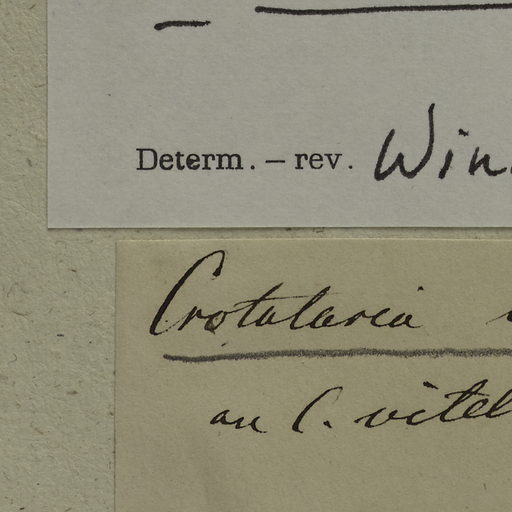 Determ. – rev. Win
Crotalaria
an C. vitel